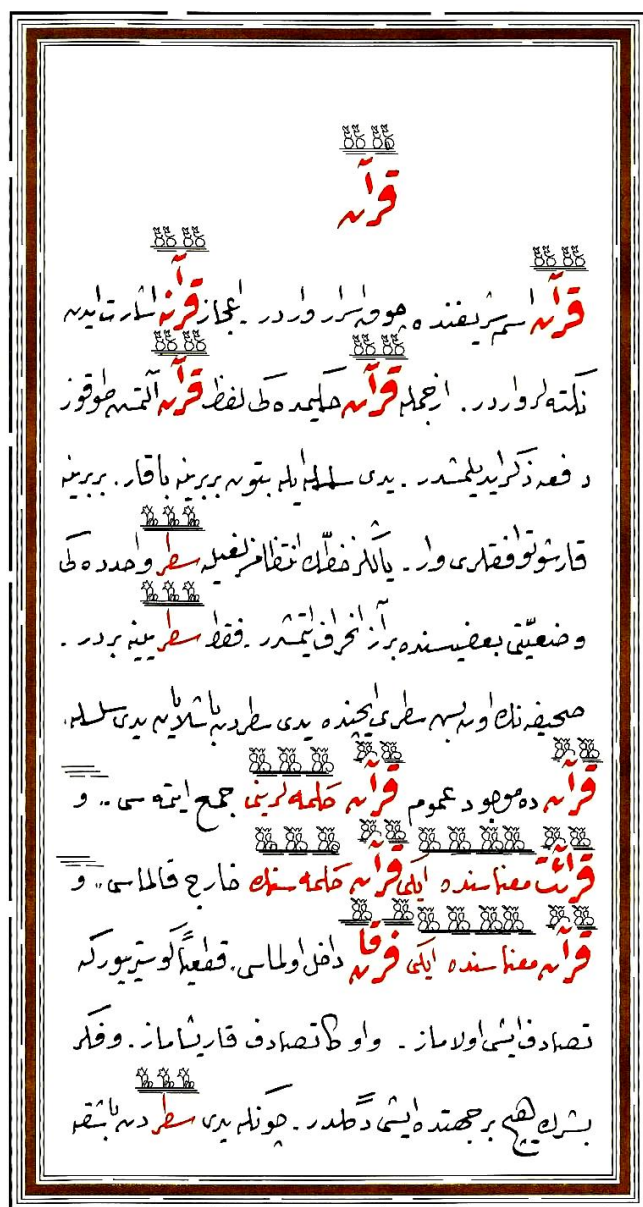 قرآن
قرآن اسم شریفنده چوق اسرار واردر. اعجاز قرآنه اشارت ایدن
نكته لر واردر. ازجمله قرآن حكیمده كی لفظ قرآن آلتمش طوقوز
دفعه ذكر ایدیلمشدر. یدی سلسله ایله بتون بربرینه باقار. بربرینه
قارشو توافقلری وار. یالكز خطّك انتظامزلغیله سطر واحدده كی
وضعیّتی بعضیسنده بر آز انحراف ایتمشدر. فقط سطر یینه بردر.
صحیفه نك اون بش سطری ایچنده یدی سطردن باشلایان یدی سلسله،
قرآن ده موجود عموم قرآن كلمه لرینی جمع ایتمه سی.. و
قرائت معناسنده ایكی قرآن كلمه سنك خارج قالماسی.. و
قرآن معناسنده ایكی فرقان داخل اولماسی، قطعیًا كوستریور كه
تصادف ایشی اولاماز. و اوكا تصادف قاریشاماز. و فكر
بشرك هیچ بر جهتده ایشی دگلدر. چونكه یدی سطردن باشقه